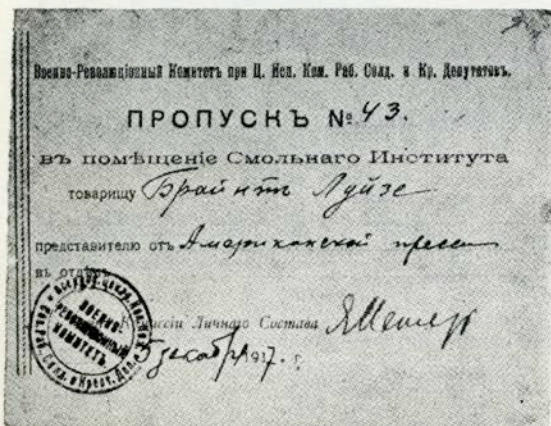 Военно-Революціонный Комитетъ при Ц. Исп. Ком. Раб. Солд. и Кр. Депутатовъ.
ПРОПУСКЪ № 43.
въ помѣщеніе Смольнаго Института
товарищу Брайнтъ Луйзе
представителю отъ Американской прессы
въ отдѣлъ
Комиссіи Личнаго Состава
ВОЕННО-
РЕВОЛЮЦІОННЫЙ
КОМИТЕТЪ.
5 декабря 1917. г.